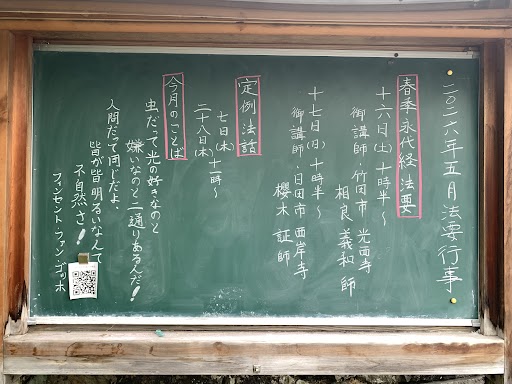 二〇二六年五月法要行事
春季・永代経法要
十六日(土)十時半〜
御講師・竹田市 光西寺
相良義和師
十七日(日)十時半〜
御講師・日田市 西岸寺
櫻木証師
定例法話
七日(木)十一時〜
二十八日(木)
今月のことば
虫だって光の好きなのと
嫌いなのと二通りあるんだ!
人間だって同じだよ、
皆が皆明るいなんて
不自然さ!
フィンセント・ファン・ゴッホ